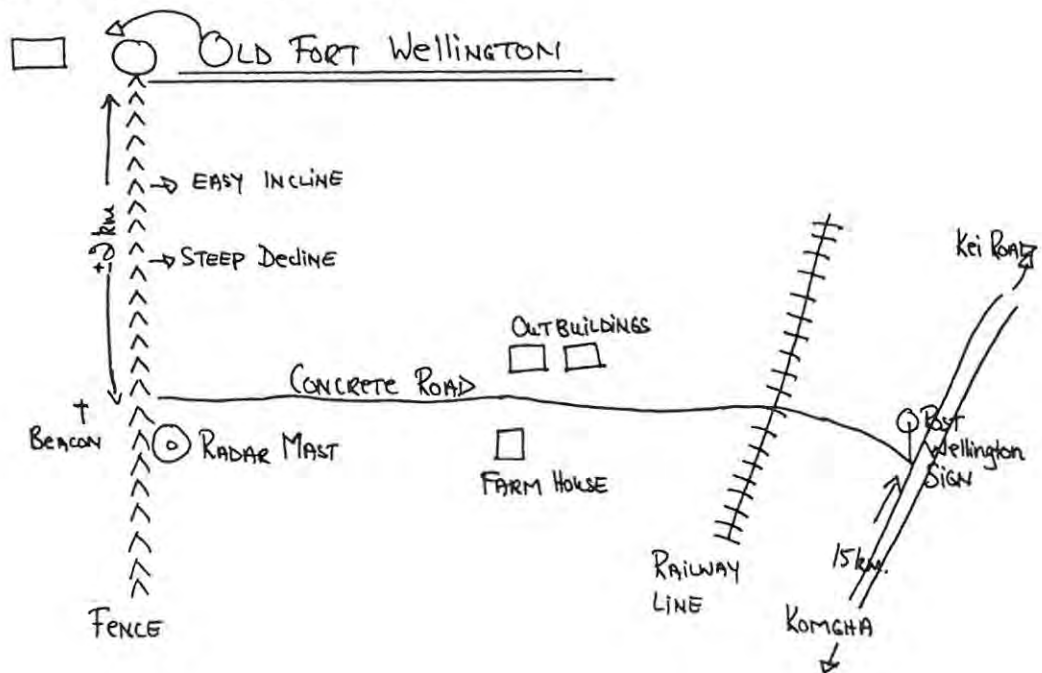 OLD FORT WELLINGTON
EASY INCLINE
±2 km
STEEP DECLINE
Kei ROAD
OUTBUILDINGS
CONCRETE ROAD
BEACON
RADAR MAST
FARM HOUSE
Post
Wellington
SIGN
15 km.
RAILWAY
LINE
FENCE
KOMGHA